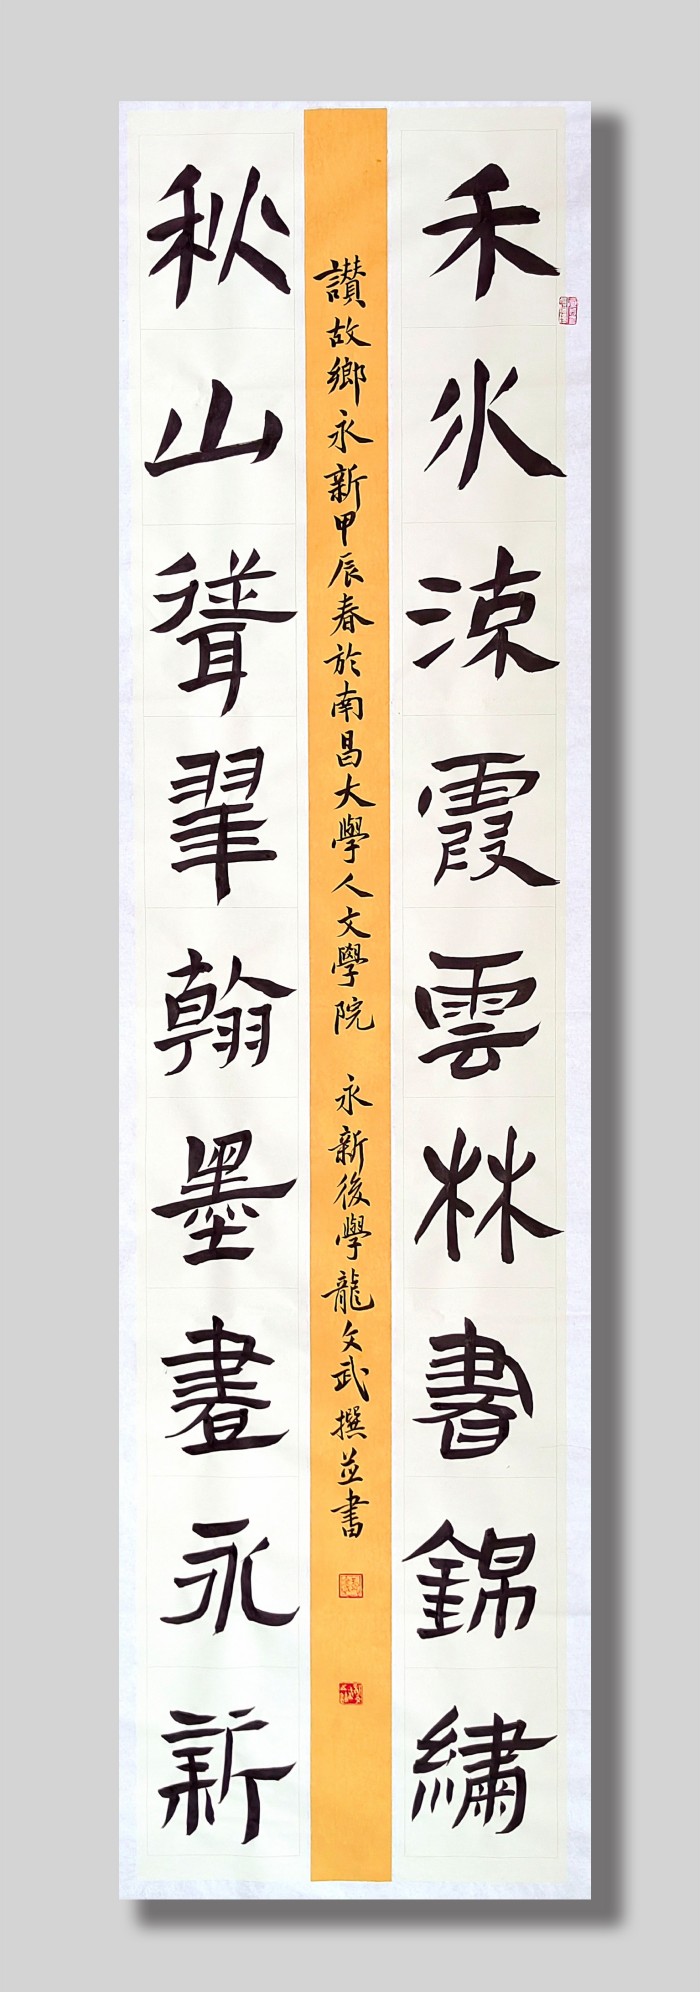 禾水涑霞雲林書錦繡
秋山聳翠翰墨畫永新
讃故鄉永新甲辰春於南昌大學人文學院 永新後學龍文武撰並書